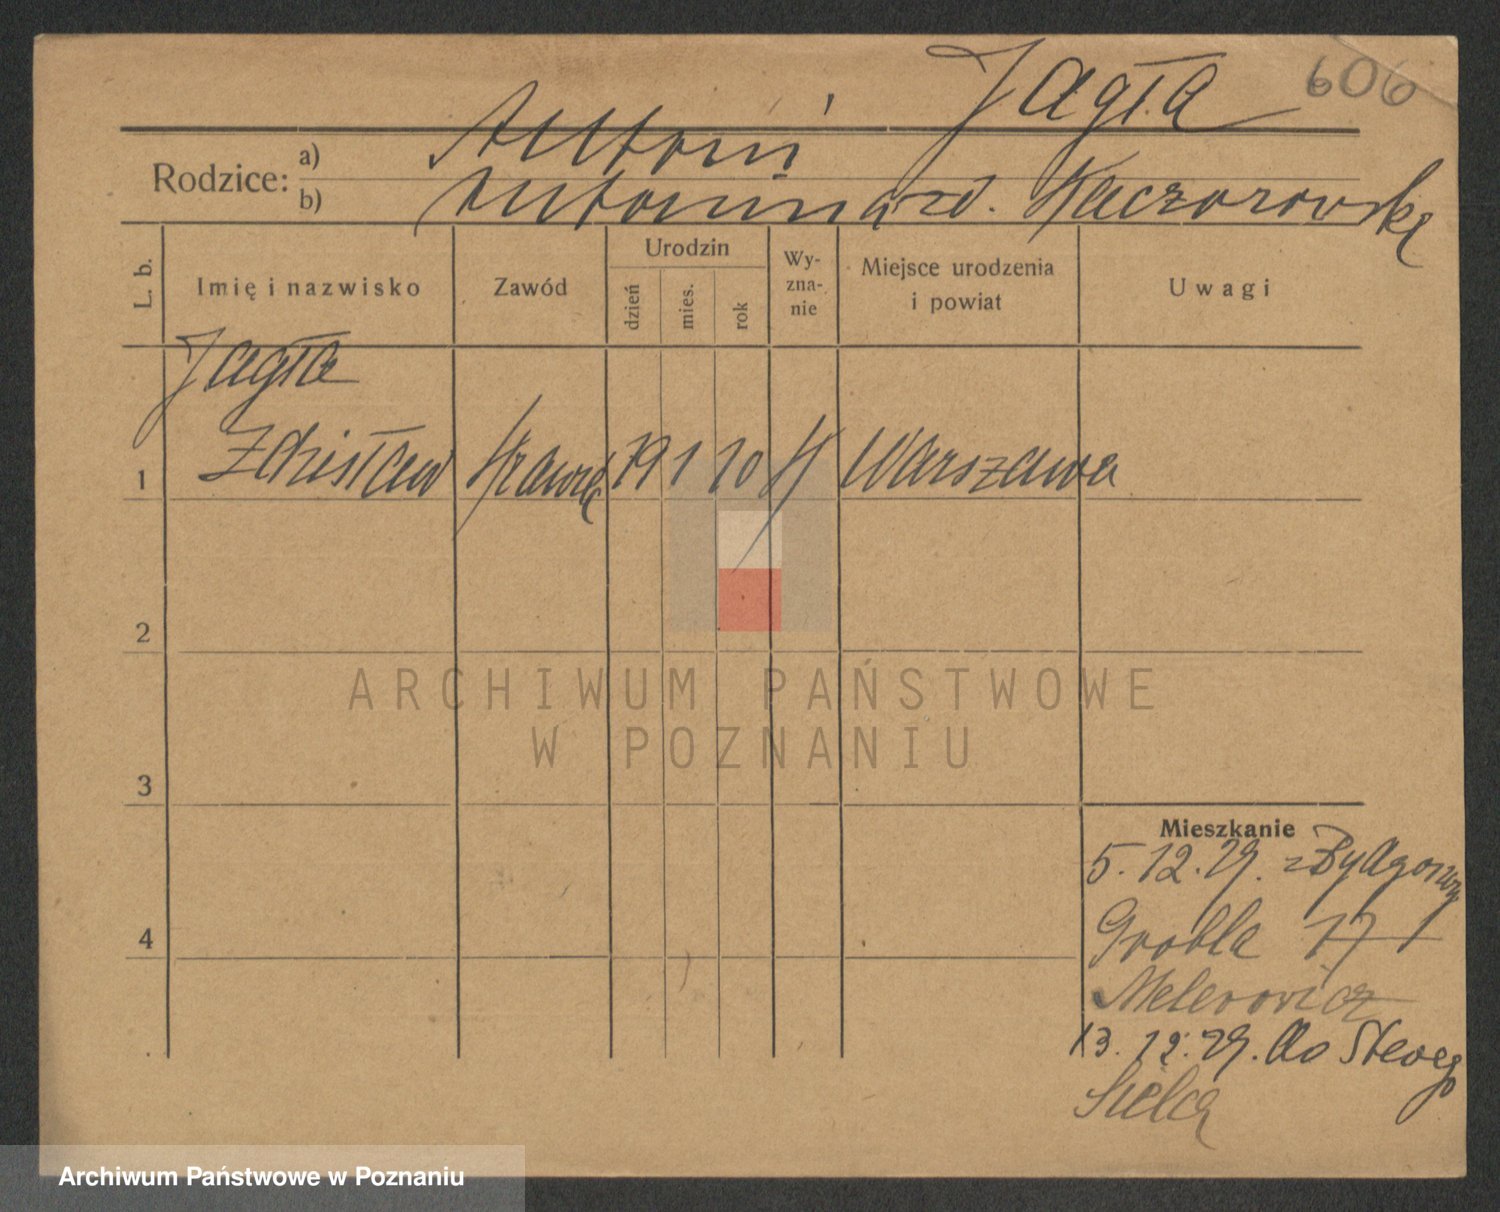 Jagła 606
Rodzice: a) Antoni
b) Antonina zd. Kaczorowska
L. b.
Imię i nazwisko
Zawód
Urodzin
dzień
mies.
rok
Wy-
zna-
nie
Miejsce urodzenia
i powiat
Uwagi
Jagła
1 Zdzisław 19 1 10 Warszawa
2
ARCHIWUM PAŃSTWOWE
W POZNANIU
3
Mieszkanie
5.12.29. z Bydgoszczy
Grobla 17
4
13.12.29. do
Archiwum Państwowe w Poznaniu